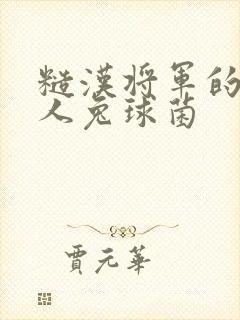 糙漢將軍的
人兔球菌
賈元華